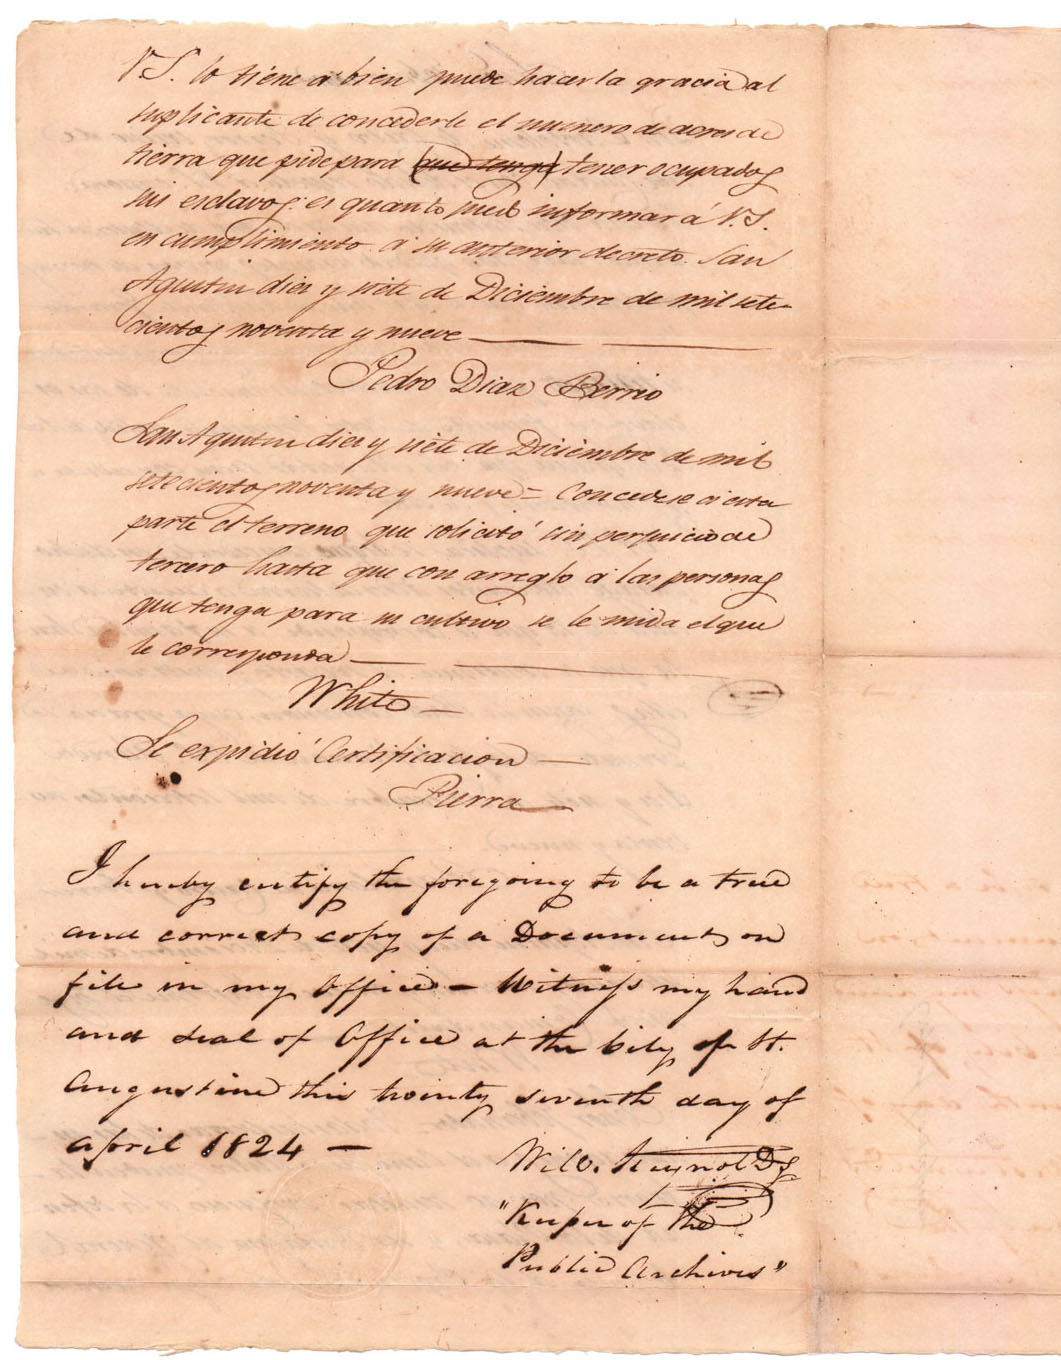 VS. lo tiene a bien puede hacer la gracia al
suplicante de concederle el numero de acres de
tierra que pide para (que tenga) tener ocupados
sus esclavos: es quanto puedo informar á V.S.
en cumplimiento a su anterior decreto. San
Agustin dies y siete de Diciembre de mil sete-
cientos noventa y nueve
Pedro Diaz Berrio
San Agustin dies y siete de Diciembre de mil
setecientos noventa y nueve = Concedese a esta
parte el terreno que solicitó sin perjuicio de
tercero hasta que con arreglo a las personas
que tenga para su cultivo se le mida el que
le corresponda
White
Se expidió Certificacion
Pierra
I hereby certify the foregoing to be a true
and correct copy of a Document on
file in my Office – Witness my hand
and seal of Office at the City of St.
Augustine this twenty seventh day of
April 1824 –
Reynolds
"Keeper of the
Public Archives"